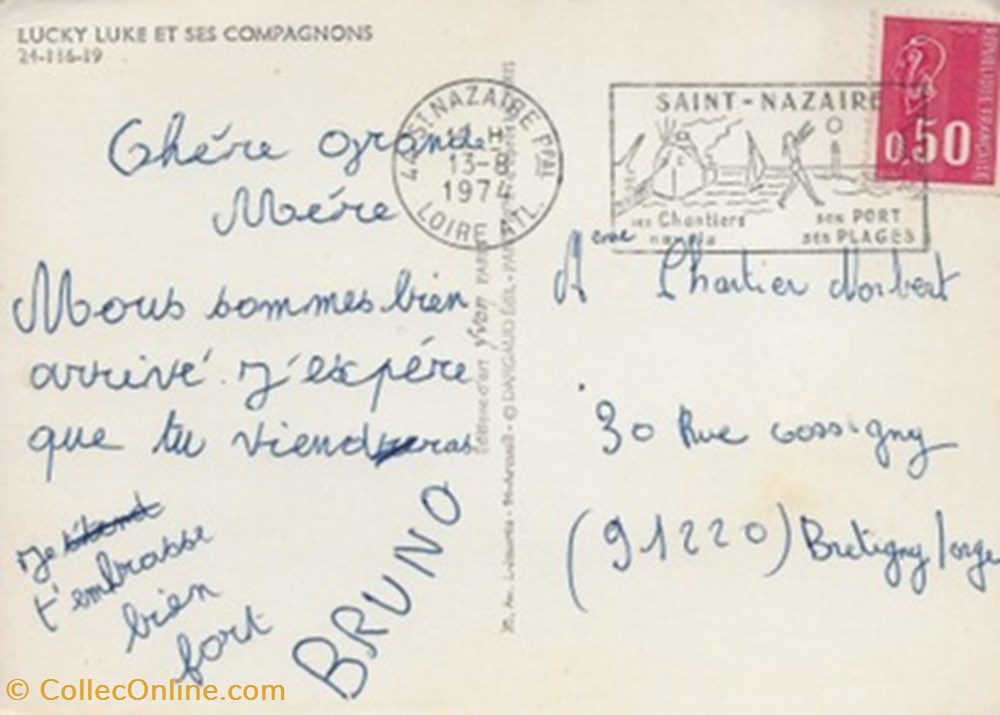 LUCKY LUKE ET SES COMPAGNONS
24-116-19
Chére Grande
Mére
Nous sommes bien
arrivé. J'éspére
que tu viendras
Je
t'embrasse
bien
fort
BRUNO
44 ST NAZAIRE PPAL
H
13-8
1974
LOIRE ATL.
SAINT-NAZAIRE
ses Chantiers
son PORT
ses PLAGES
REPUBLIQUE FRANCAISE
0,50
Editions d'art Yvon PARIS
© DARGAUD ÉDIT. - PARIS
Chartier Norbert
30 Rue cossigny
(91220) Bretigny/orge
© CollecOnline.com